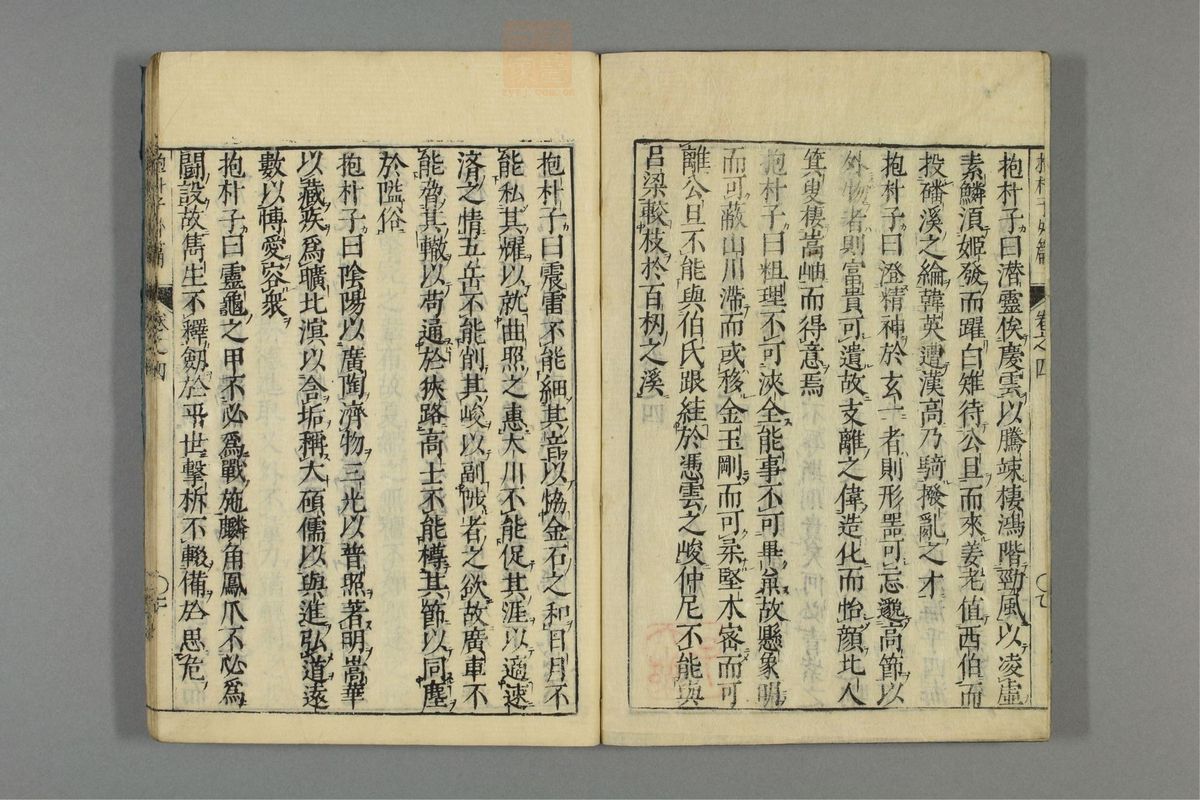 抱朴子曰潜靈俟慶雲以騰竦棲鴻階勁風以凌虛
素鱗湏姬發而躍白雉待公旦而來姜老值西伯而
投磻溪之綸韓英遭漢高乃騁撥亂之才
抱朴子曰澄精神於玄一者則形器可忘邈高節以
外物者則富貴可遺故支離之偉造化而怡顏北人
箕叟棲嵩岫而得意焉
抱朴子曰粗理不可浹全能事不可畢兼故懸象明
而可蔽山川滯而或移金玉剛而可柔堅木密而可
離公旦不能與伯氏跟絓於憑雲之峻仲尼不能與
呂梁較枝於百仞之溪
抱朴子曰震雷不能細其音以恊金石之和日月不
能私其燿以就曲照之惠大川不能促其涯以適速
濟之情五岳不能削其峻以副陟者之欲故廣車不
能脅其轍以苟通於狹路高士不能撙其節以同塵
於隘俗
抱朴子曰陰陽以廣陶濟物三光以普照著明嵩華
以藏疾爲曠北溟以含垢稱大碩儒以與進弘道遠
數以博愛容衆
抱朴子曰靈龜之甲不必爲戰施麟角鳳爪不必爲
鬪設故雋生不釋劔於平世擊柝不輟備於思危
卷之四